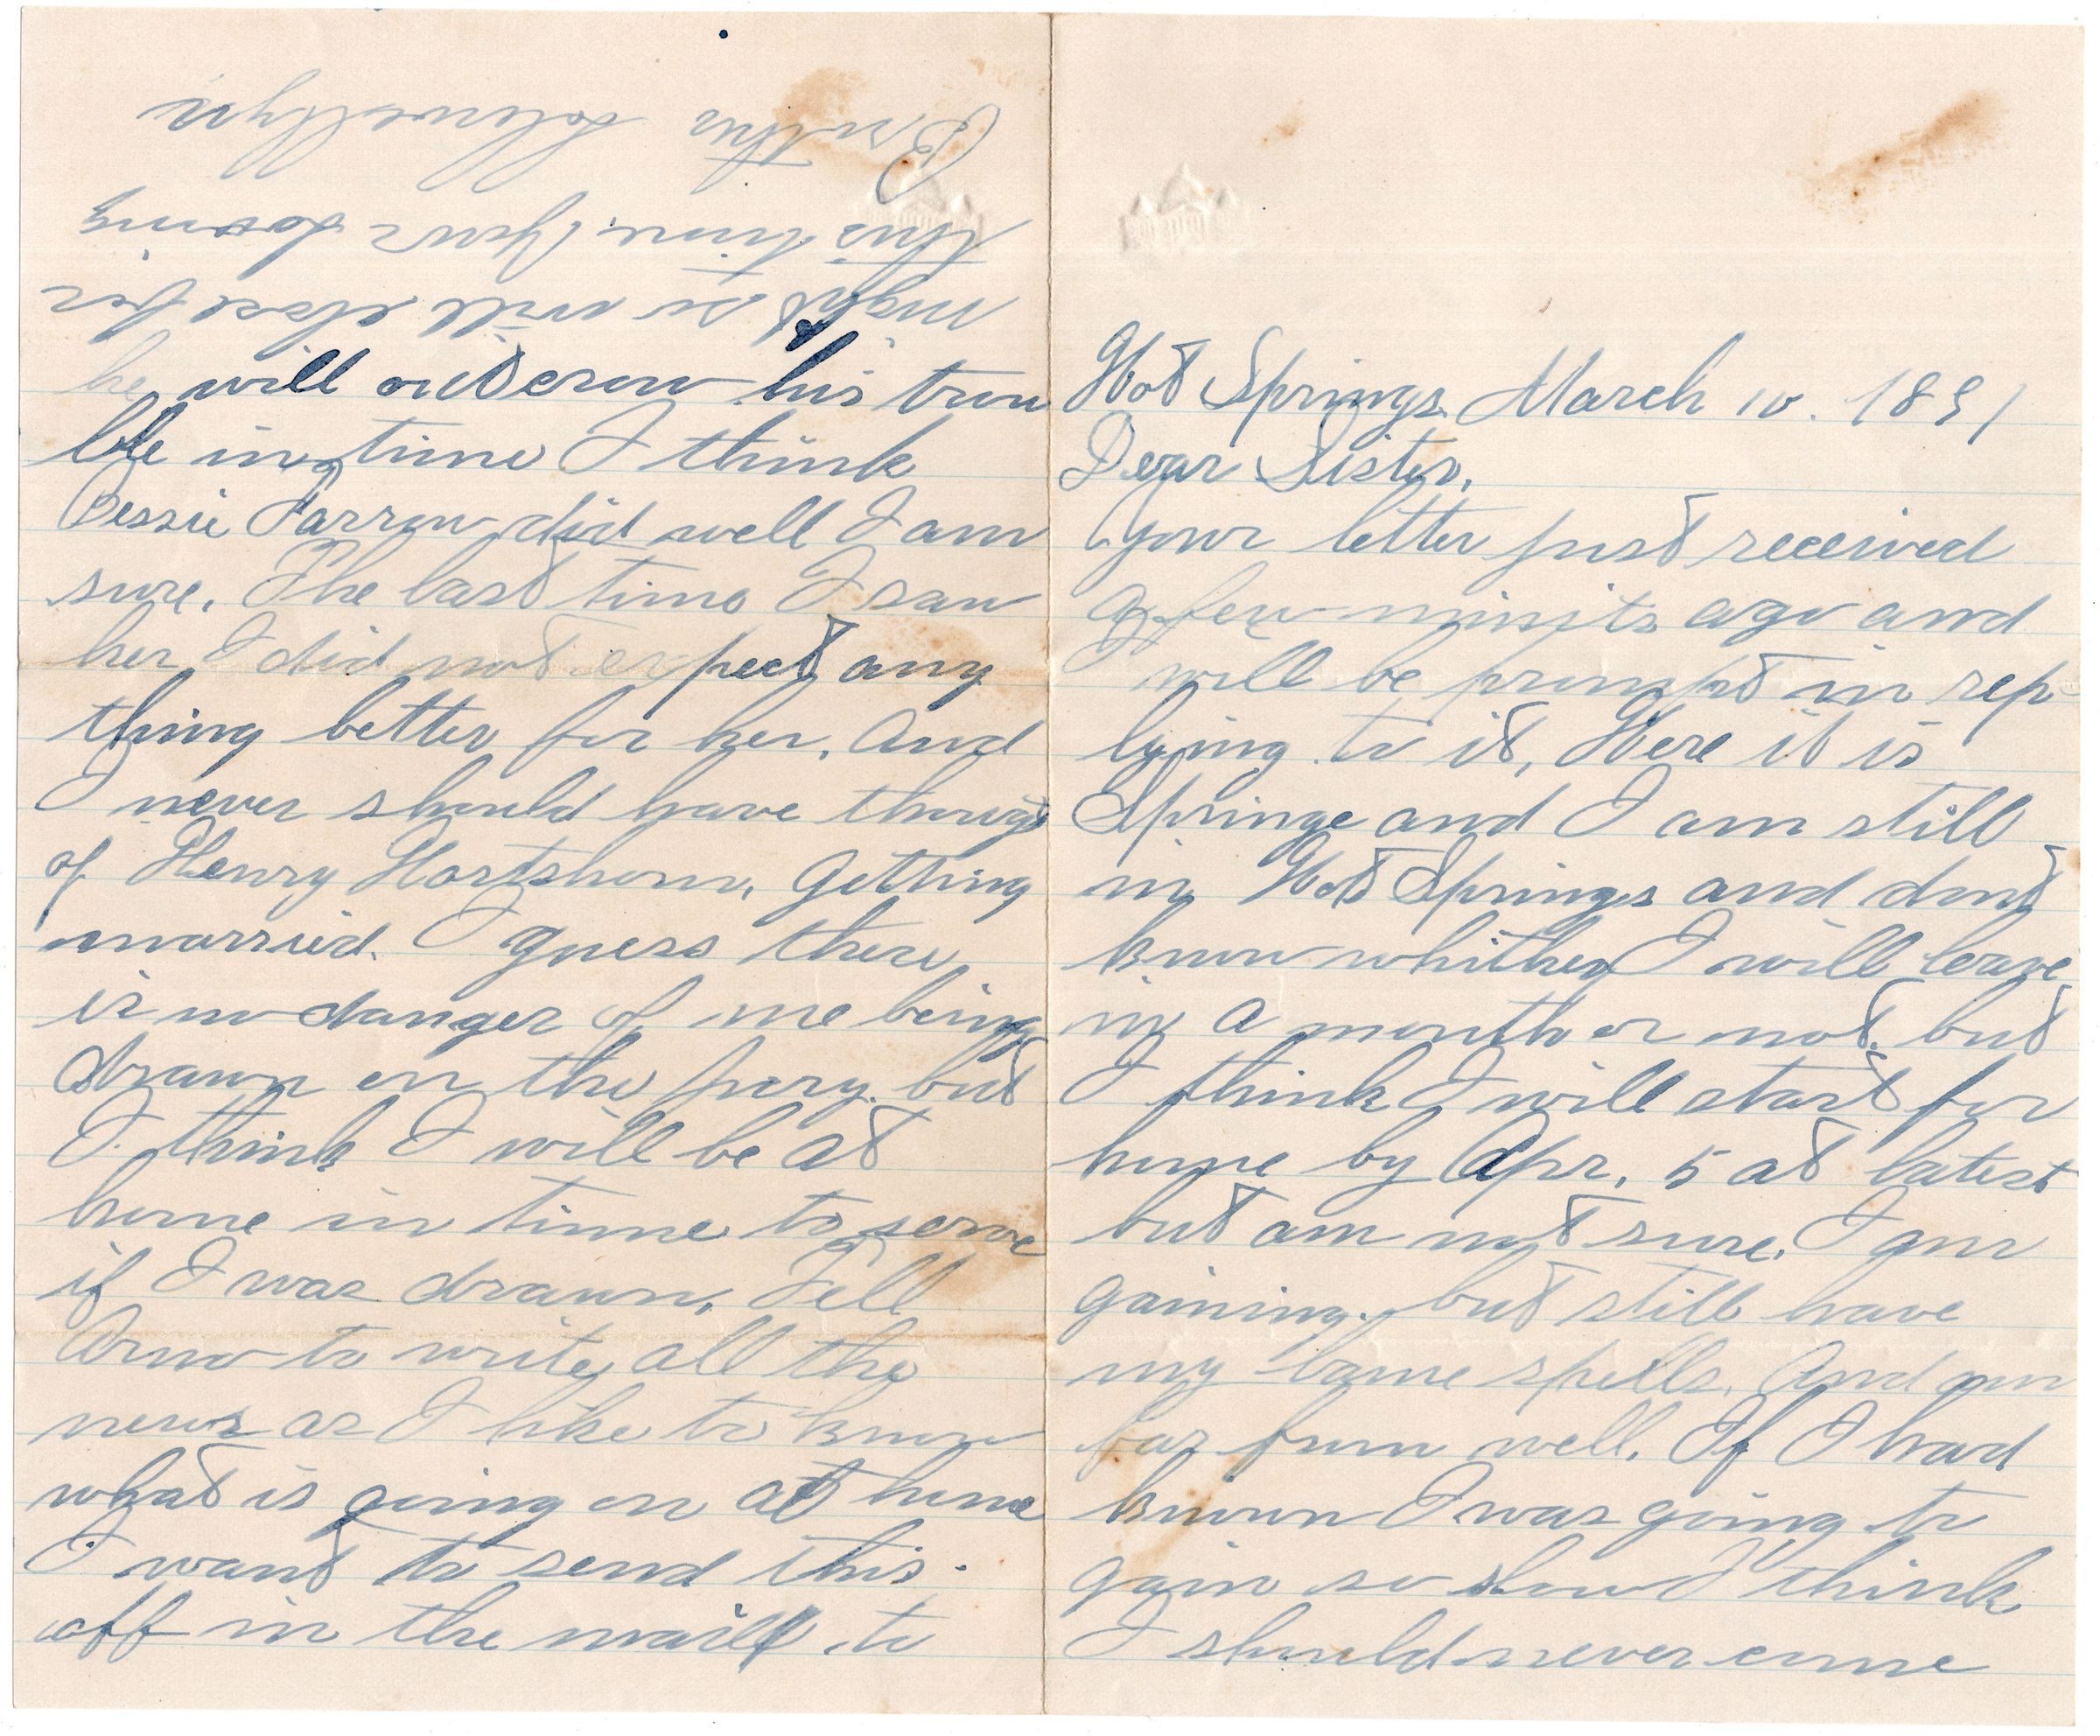 Hot Springs March 10. 1891
Dear Sister,
your letter just received
a few minits ago and
I will be prompt in rep-
lying to it, Here it is
Springe and I am still
in Hot Springs and dont
know whither I will leave
in a month or not. but
I think I will start for
home by Apr. 5 at latest
but am not sure. I am
gaining. but still have
my lame spells. And am
far from well. If I had
known I was going to
gain so slow I think
I should never come
he will outcrow his trou
ble in time I think
Bessie Farrow did well I am
sure. The last time I saw
her I did not expect any
thing better for her. And
I never should have thought
of Henry Hartshorn, Getting
married. I guess there
is no danger of me being
drawn on the jury. but
I think I will be at
home in time to serve
if I was drawn. Tell
Arno to write all the
news as I like to know
what is going on at home
I want to send this
off in the maill to
night so will close for
this time, Your loving
Brother